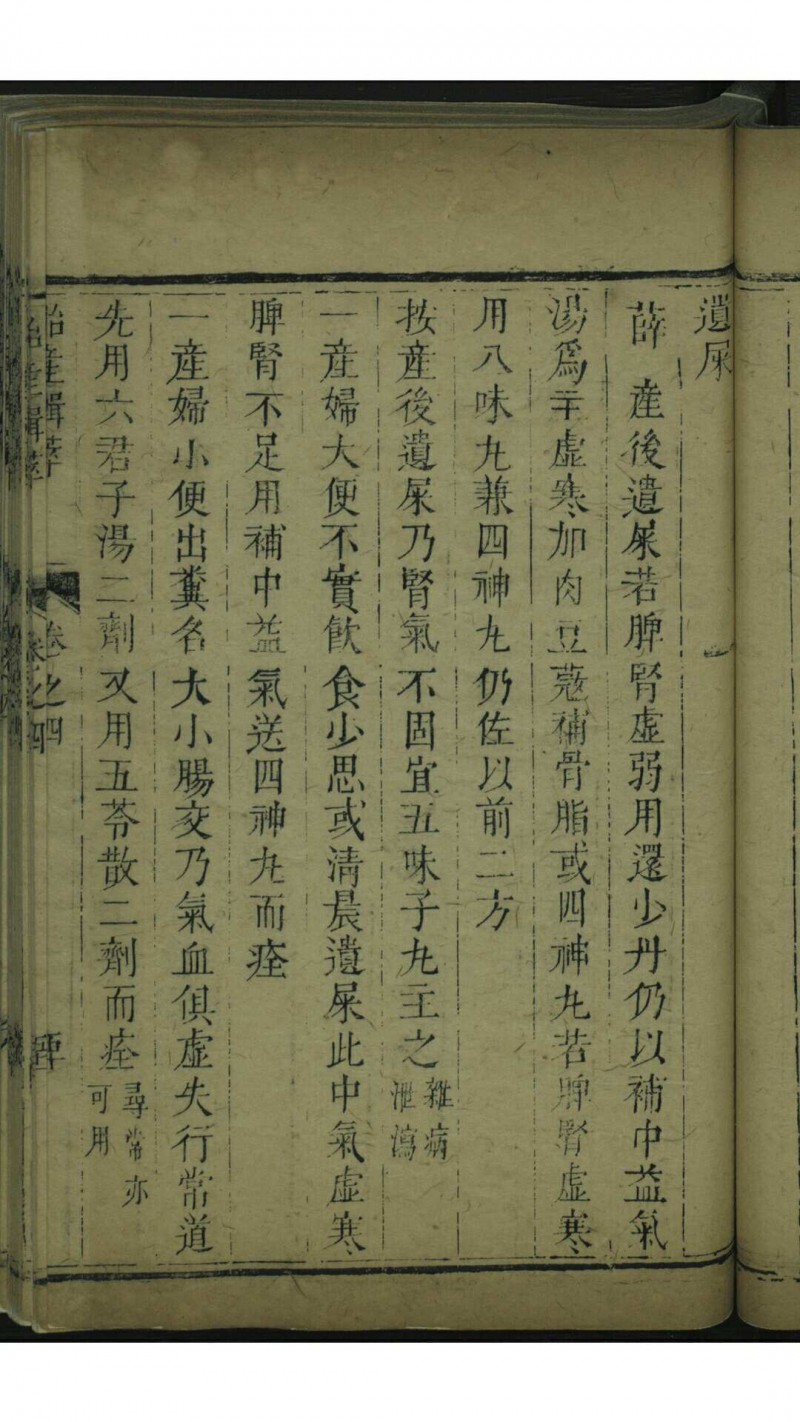 遺屎
薛 產後遺屎若脾腎虛弱用還少丹仍以補中益氣
湯爲主虛寒加肉豆蔻補骨脂或四神丸若脾腎虛寒
用八味丸兼四神丸仍佐以前二方
按產後遺屎乃腎氣不固宜五味子丸主之雜病泄瀉
一產婦大便不實飲食少思或清晨遺屎此中氣虛寒
脾腎不足用補中益氣送四神丸而痊
一產婦小便出糞名大小腸交乃氣血俱虛失行常道
先用六君子湯二劑又用五苓散二劑而痊尋常亦可用
胎產輯萃 卷之四